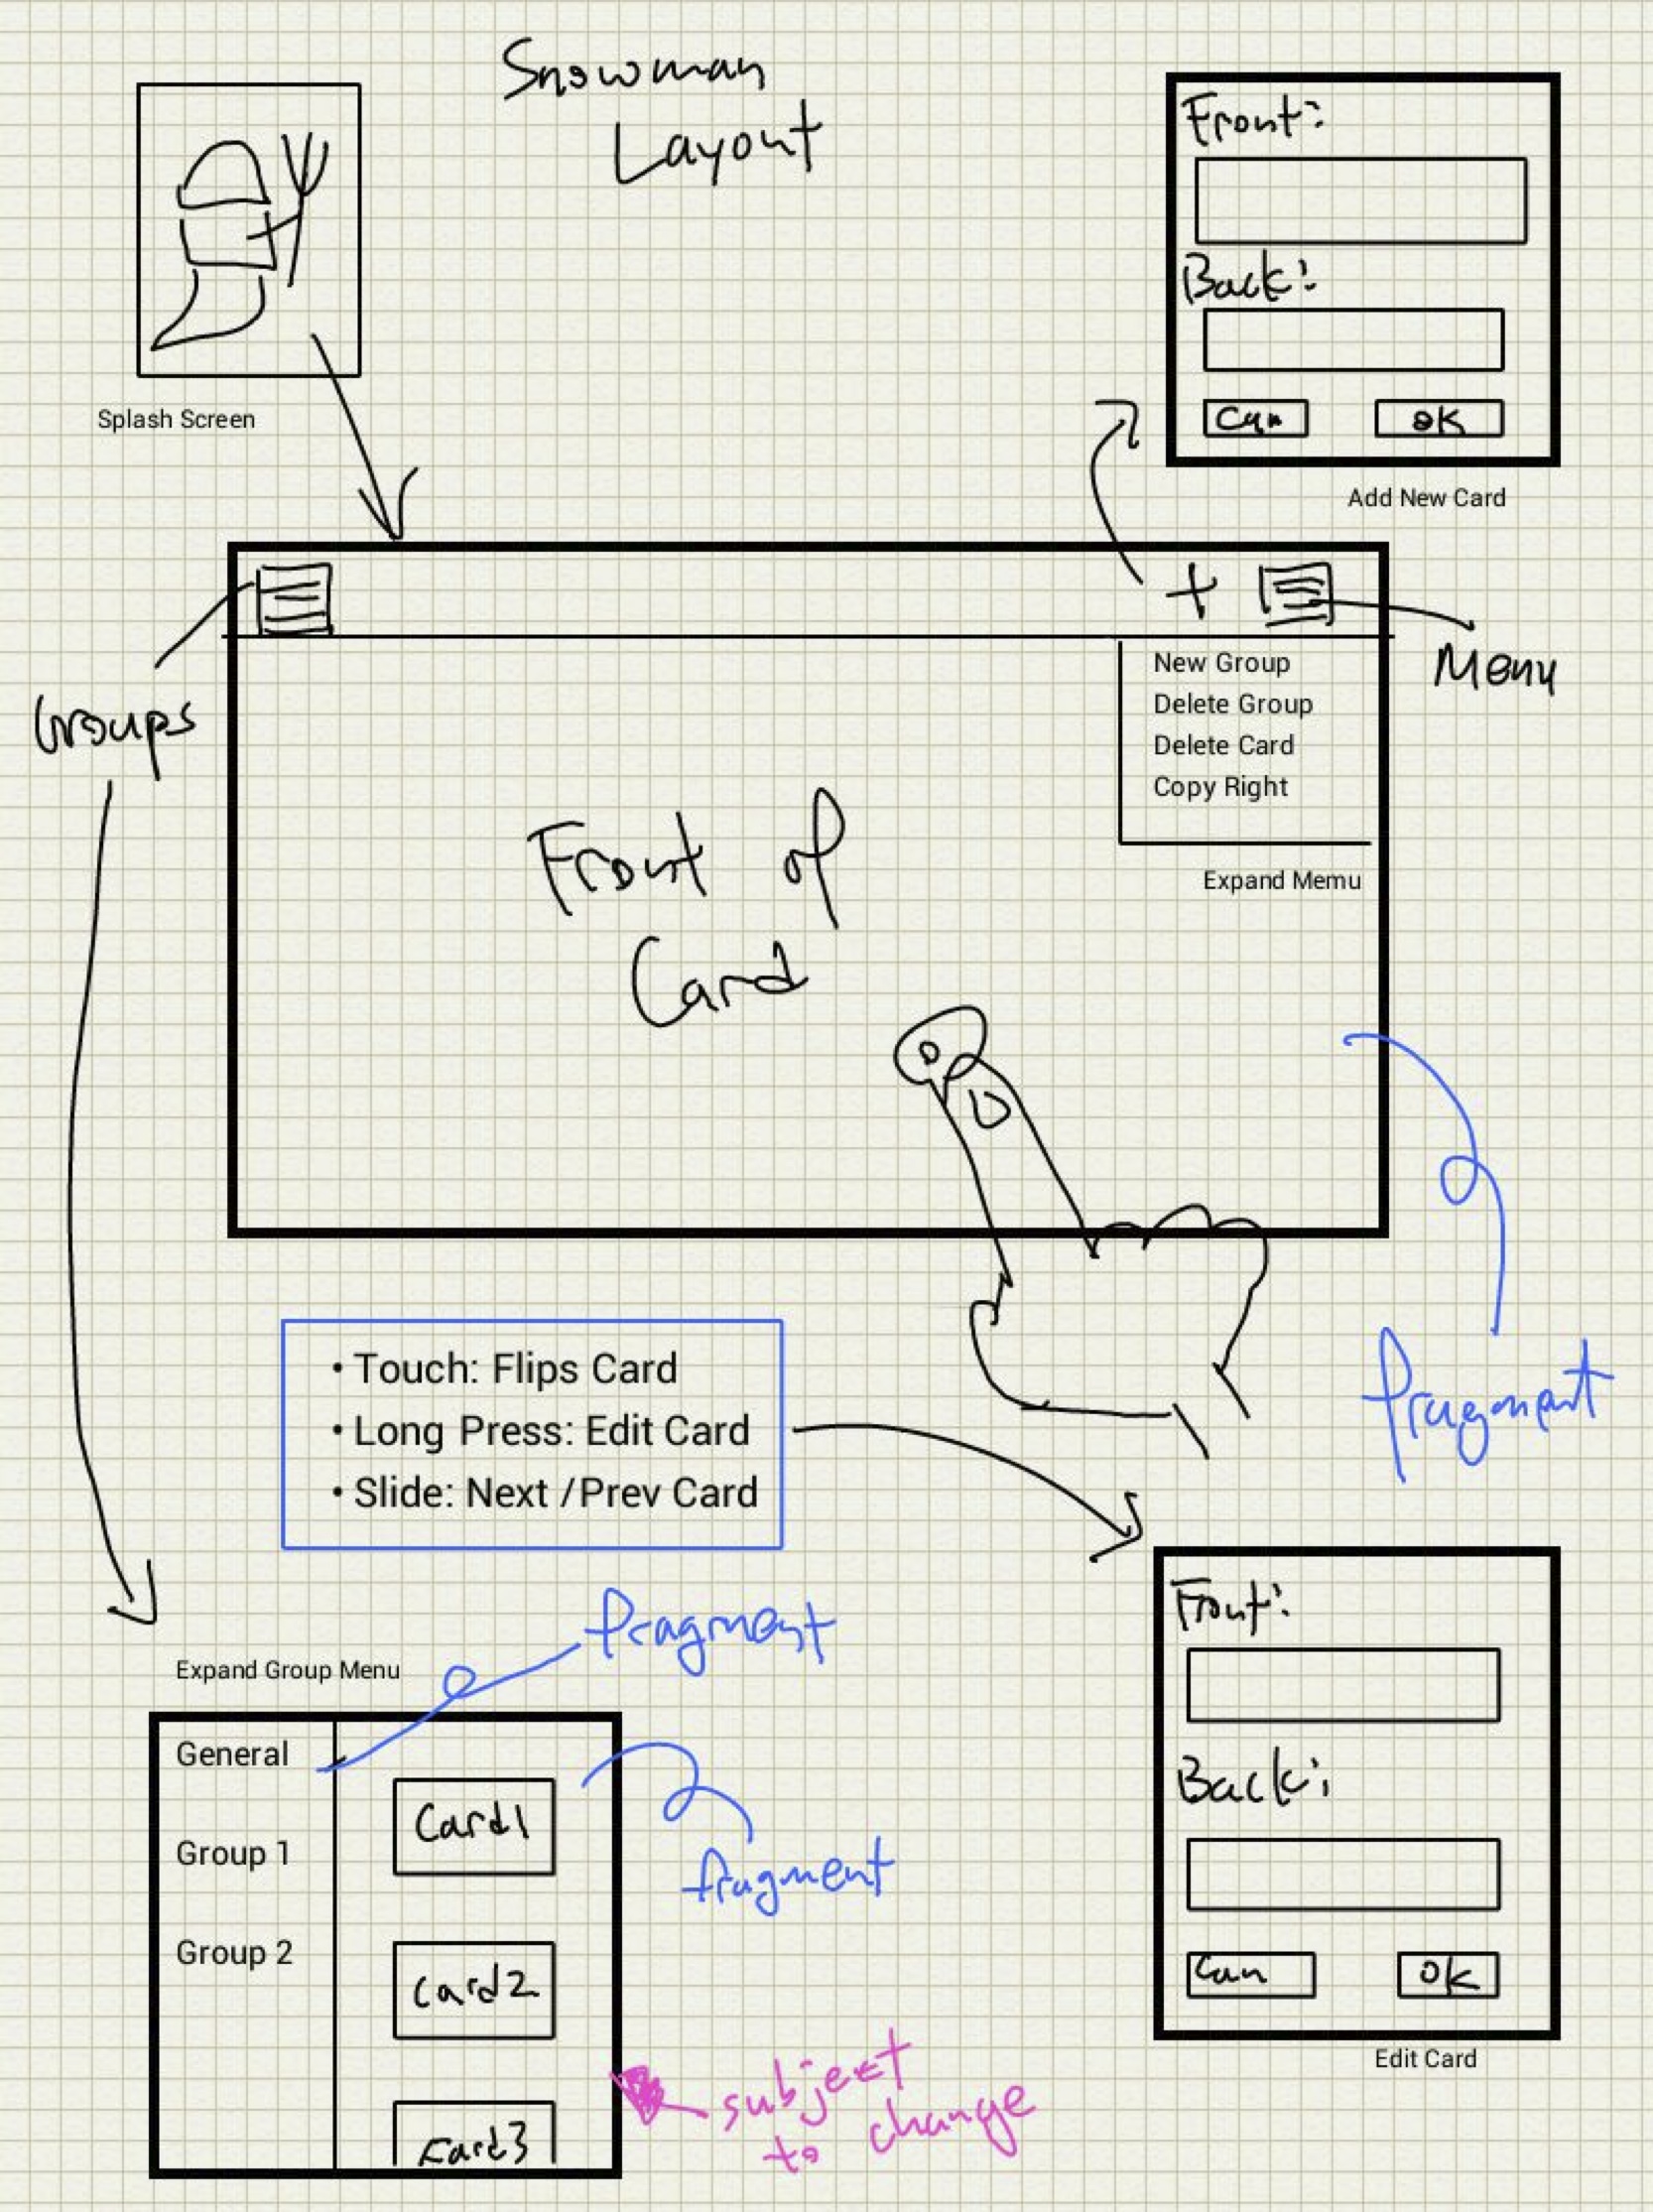 Snowman
Layout
Splash Screen
Front:
Back:
Can
OK
Add New Card
Groups
+
Menu
New Group
Delete Group
Delete Card
Copy Right
Expand Memu
Front of
Card
fragment
• Touch: Flips Card
• Long Press: Edit Card
• Slide: Next /Prev Card
Expand Group Menu
fragment
General
Group 1
Group 2
Card1
Card2
Card3
fragment
subject
to change
Front:
Back:
Can
OK
Edit Card